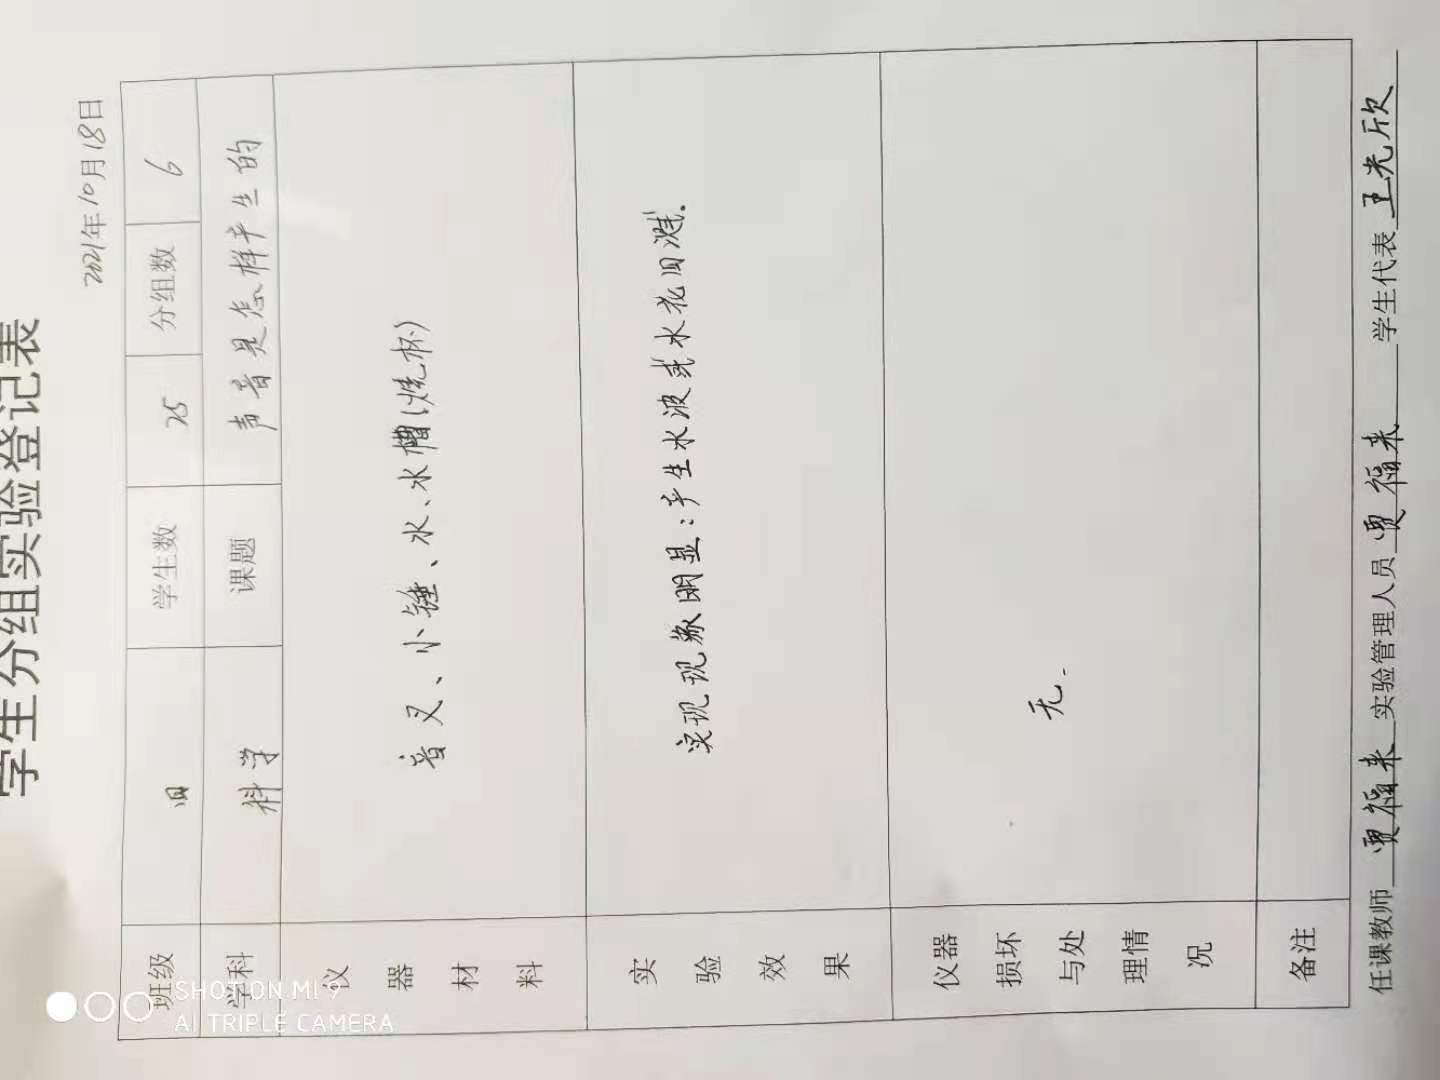 学生分组实验登记表
2021年10月18日
班级 四 学生数 25 分组数 6
学科 科学 课题 声音是怎样产生的
仪器材料 音叉、小锤、水、水槽(烧杯)
实验效果 实现现象明显:产生水波或水花四溅.
仪器损坏与处理情况 无.
备注
任课教师 贾福来 实验管理人员 贾福来 学生代表 王光欣
SHOT ON MI 9
AI TRIPLE CAMERA